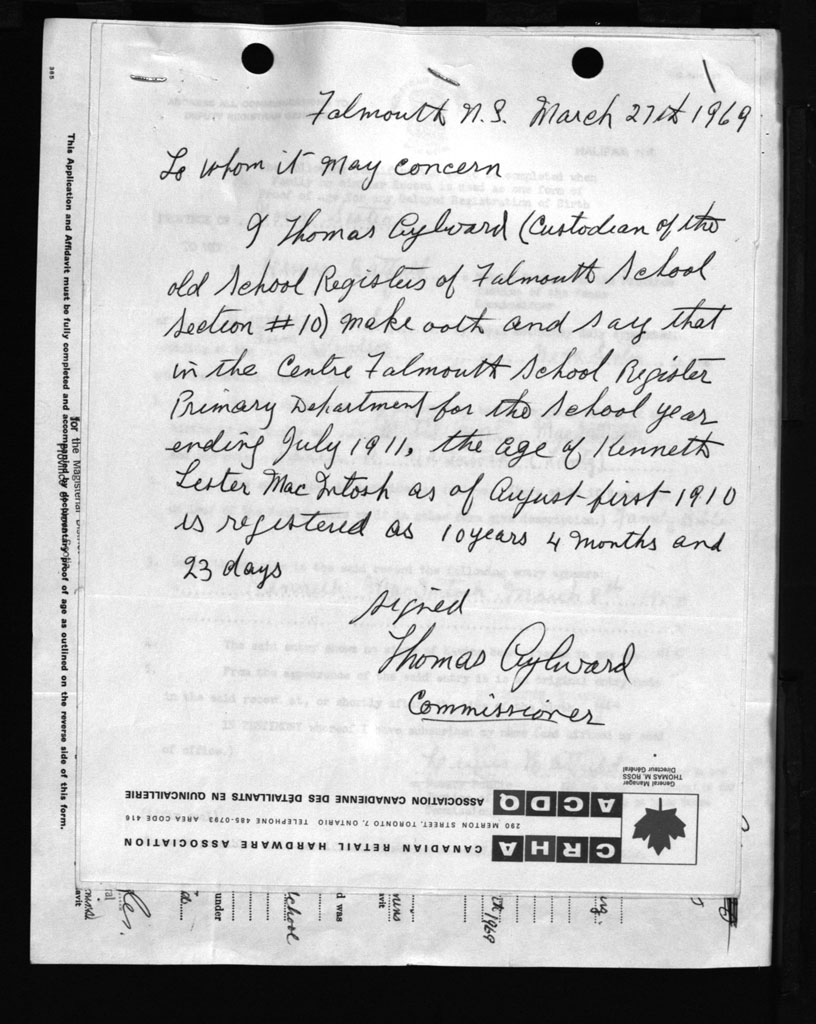 Falmouth N.S. March 27th 1969
To whom it may concern
I Thomas Aylward (Custodian of the
old School Registers of Falmouth School
Section #10) make oath and say that
in the Centre Falmouth School Register
Primary Department for the School year
ending July 1911, the age of Kenneth
Lester Mac Intosh as of August first 1910
is registered as 10 years 4 months and
23 days
signed
Thomas Aylward
Commissioner
CRHA CANADIAN RETAIL HARDWARE ASSOCIATION
290 MERTON STREET, TORONTO 7, ONTARIO TELEPHONE 485-0793 AREA CODE 416
ACDQ ASSOCIATION CANADIENNE DES DÉTAILLANTS EN QUINCAILLERIE
THOMAS M. ROSS
General Manager
Directeur Général
This Application and Affidavit must be fully completed and accompanied by documentary proof of age as outlined on the reverse side of this form.
for the Magisterial
under
School
d was
th 1969